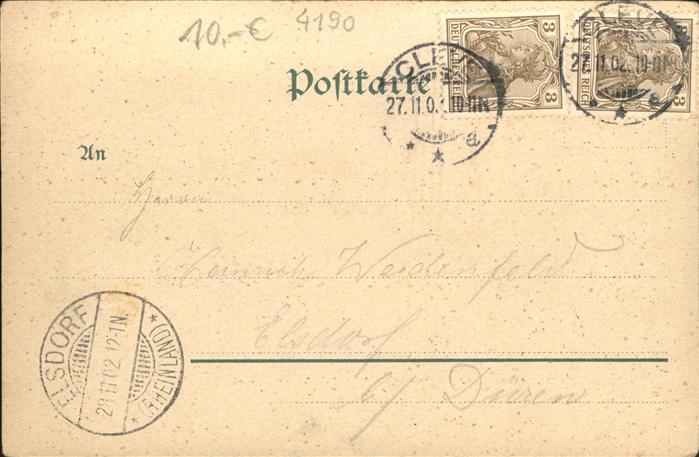 10,-€ 4190
3 DEUTSCHES REICH
3 DEUTSCHES REICH
CLEVE
27.11.02. 10-11N
a
CLEVE
27.11.02. 10-11N
a
Postkarte
An
Herrn
Heinrich Weidenfeld
Elsdorf
b/ Düren
ELSDORF
28.11.02.12-1N.
* (RHEINLAND) *